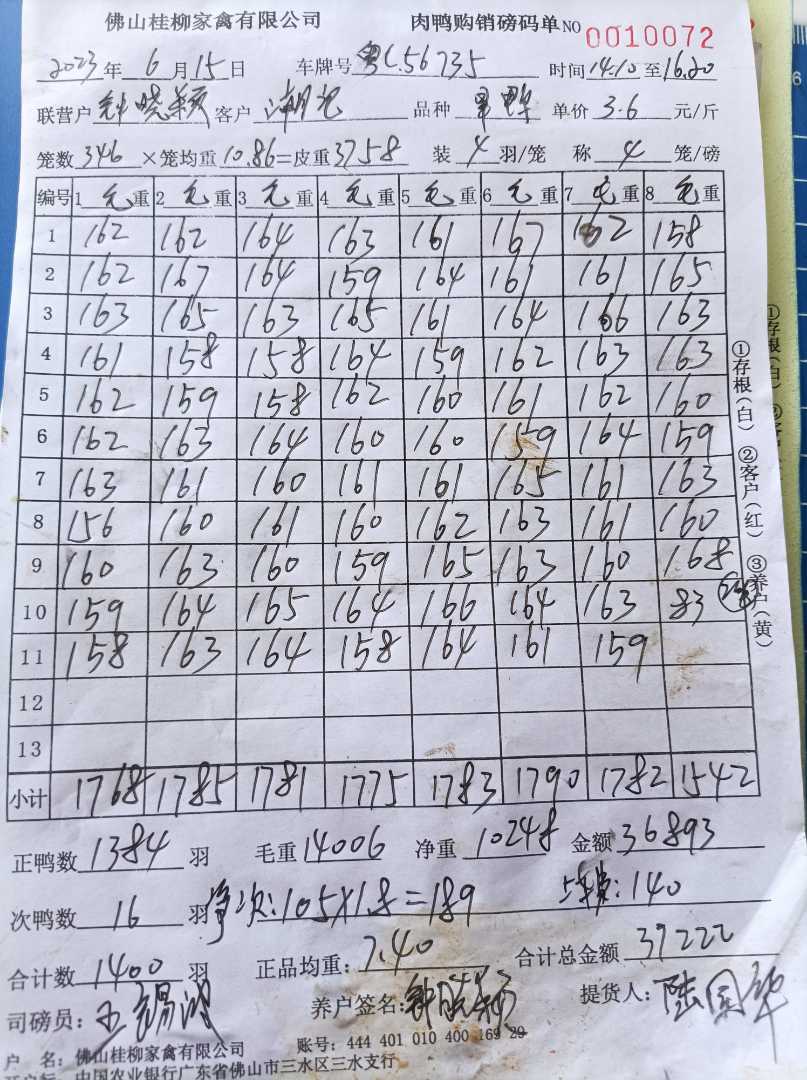 佛山桂柳家禽有限公司 肉鸭购销磅码单 NO 0010072
2023年 6月15日 车牌号 粤C.56735 时间 14.10 至 16.20
联营户 钟晓颖 客户 品种 单价 3.6 元/斤
笼数 346 ×笼均重 10.86 =皮重 3758 装 4 羽/笼 称 4 笼/磅
编号 1 毛重 2 毛重 3 毛重 4 毛重 5 毛重 6 毛重 7 毛重 8 毛重
1 162 162 164 163 161 167 162 158
2 162 167 164 159 164 161 161 165
3 163 165 163 165 161 164 166 163
4 161 158 158 164 159 162 163 163
5 162 159 158 162 160 161 162 160
6 162 163 164 160 160 159 164 159
7 163 161 160 161 161 165 161 163
8 156 160 161 160 162 163 161 160
9 160 163 160 159 165 163 160 168
10 159 164 165 164 166 164 163 83
11 158 163 164 158 164 161 159
12
13
小计 1768 1785 1781 1775 1783 1790 1782 1542
①存根(白) ②客户(红) ③养户(黄)
正鸭数 1384 羽 毛重 14006 净重 10248 金额 36893
次鸭数 16 羽 净次:105×1.8=189 :140
合计数 1400 羽 正品均重: 7.40 合计总金额 37222
司磅员: 养户签名: 钟晓颖 提货人:
户 名: 佛山桂柳家禽有限公司 账号: 444 401 010 400 169 29
中国农业银行广东省佛山市三水区三水支行
①存根(白)
6